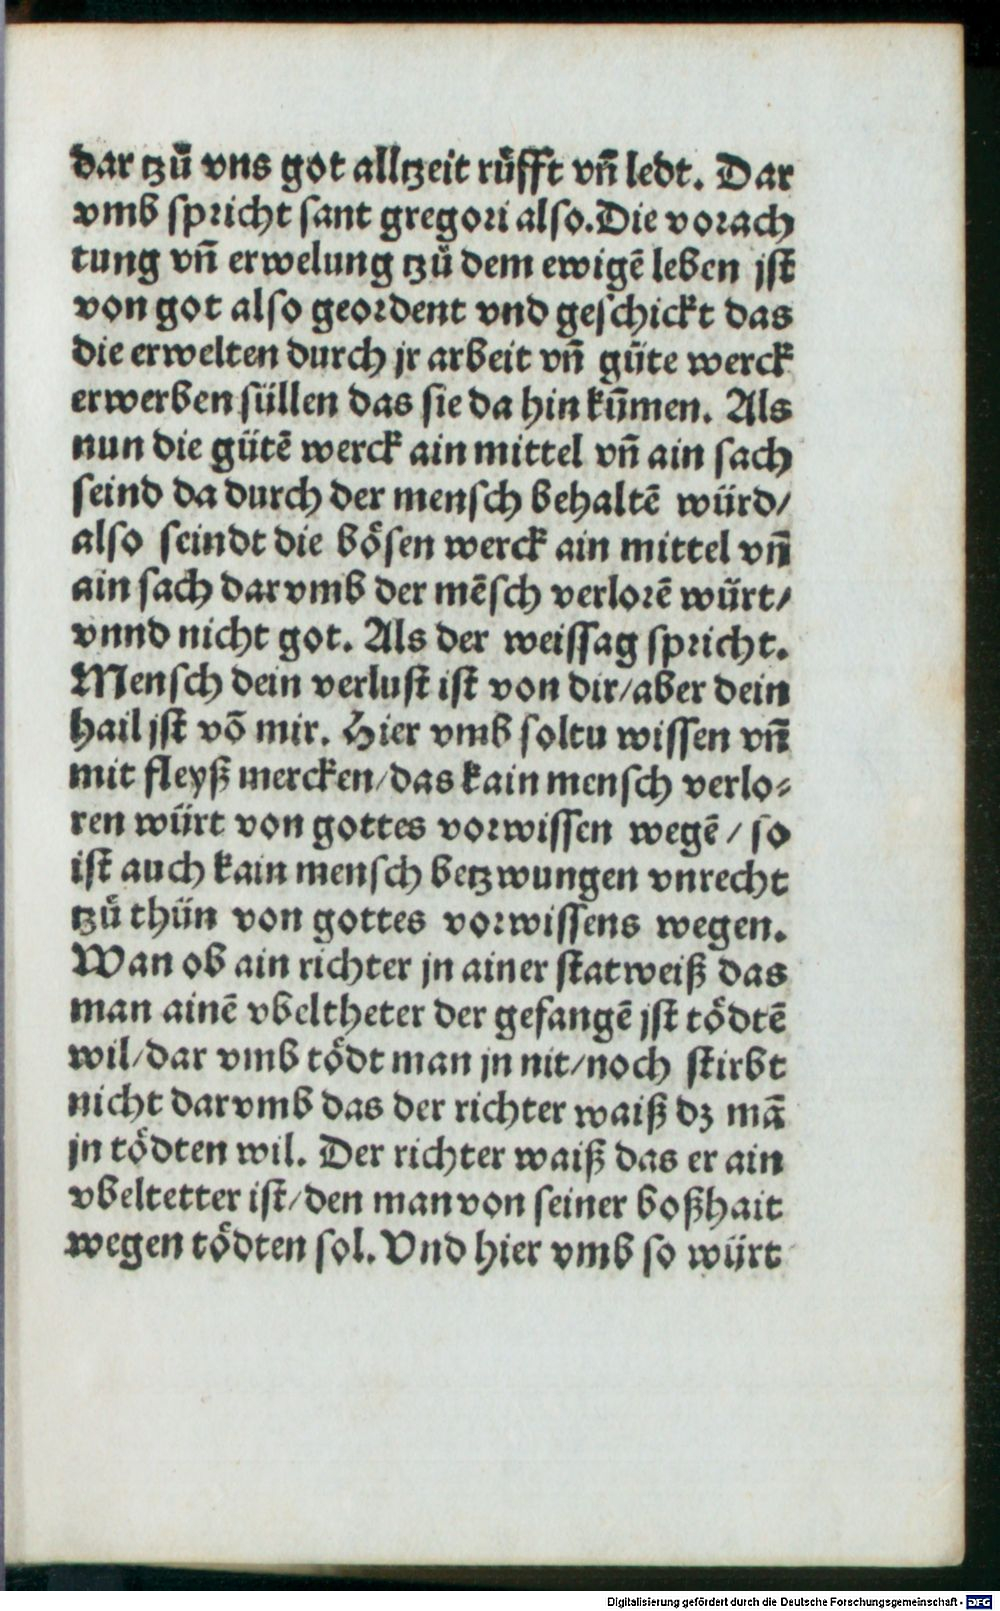 dar tzů vns got alltzeit růfft vn̄ ledt. Dar
vmb spricht sant gregori also. Die vorach
tung vn̄ erwelung tzů dem ewigē leben jst
von got also geordent vnd geschickt das
die erwelten durch jr arbeit vn̄ gůte werck
erwerben süllen das sie da hin kūmen. Als
nun die gůtē werck ain mittel vn̄ ain sach
seind da durch der mensch behaltē würd/
also seindt die bösen werck ain mittel vn̄
ain sach dar vmb der mēsch verlorē würt/
vnnd nicht got. Als der weissag spricht.
Mensch dein verlust ist von dir/aber dein
hail jst vō mir. Hier vmb soltu wissen vn̄
mit fleyß mercken/das kain mensch verlo⸗
ren würt von gottes vorwissen wegē/ so
ist auch kain mensch betzwungen vnrecht
tzů thůn von gottes vorwissens wegen.
Wan ob ain richter jn ainer stat weiß das
man ainē vbeltheter der gefangē jst tödtē
wil/dar vmb tödt man jn nit/noch stirbt
nicht dar vmb das der richter waiß dz mā
jn tödten wil. Der richter waiß das er ain
vbeltetter ist/den man von seiner boßhait
wegen tödten sol. Vnd hier vmb so würt
Digitalisierung gefördert durch die Deutsche Forschungsgemeinschaft - DFG